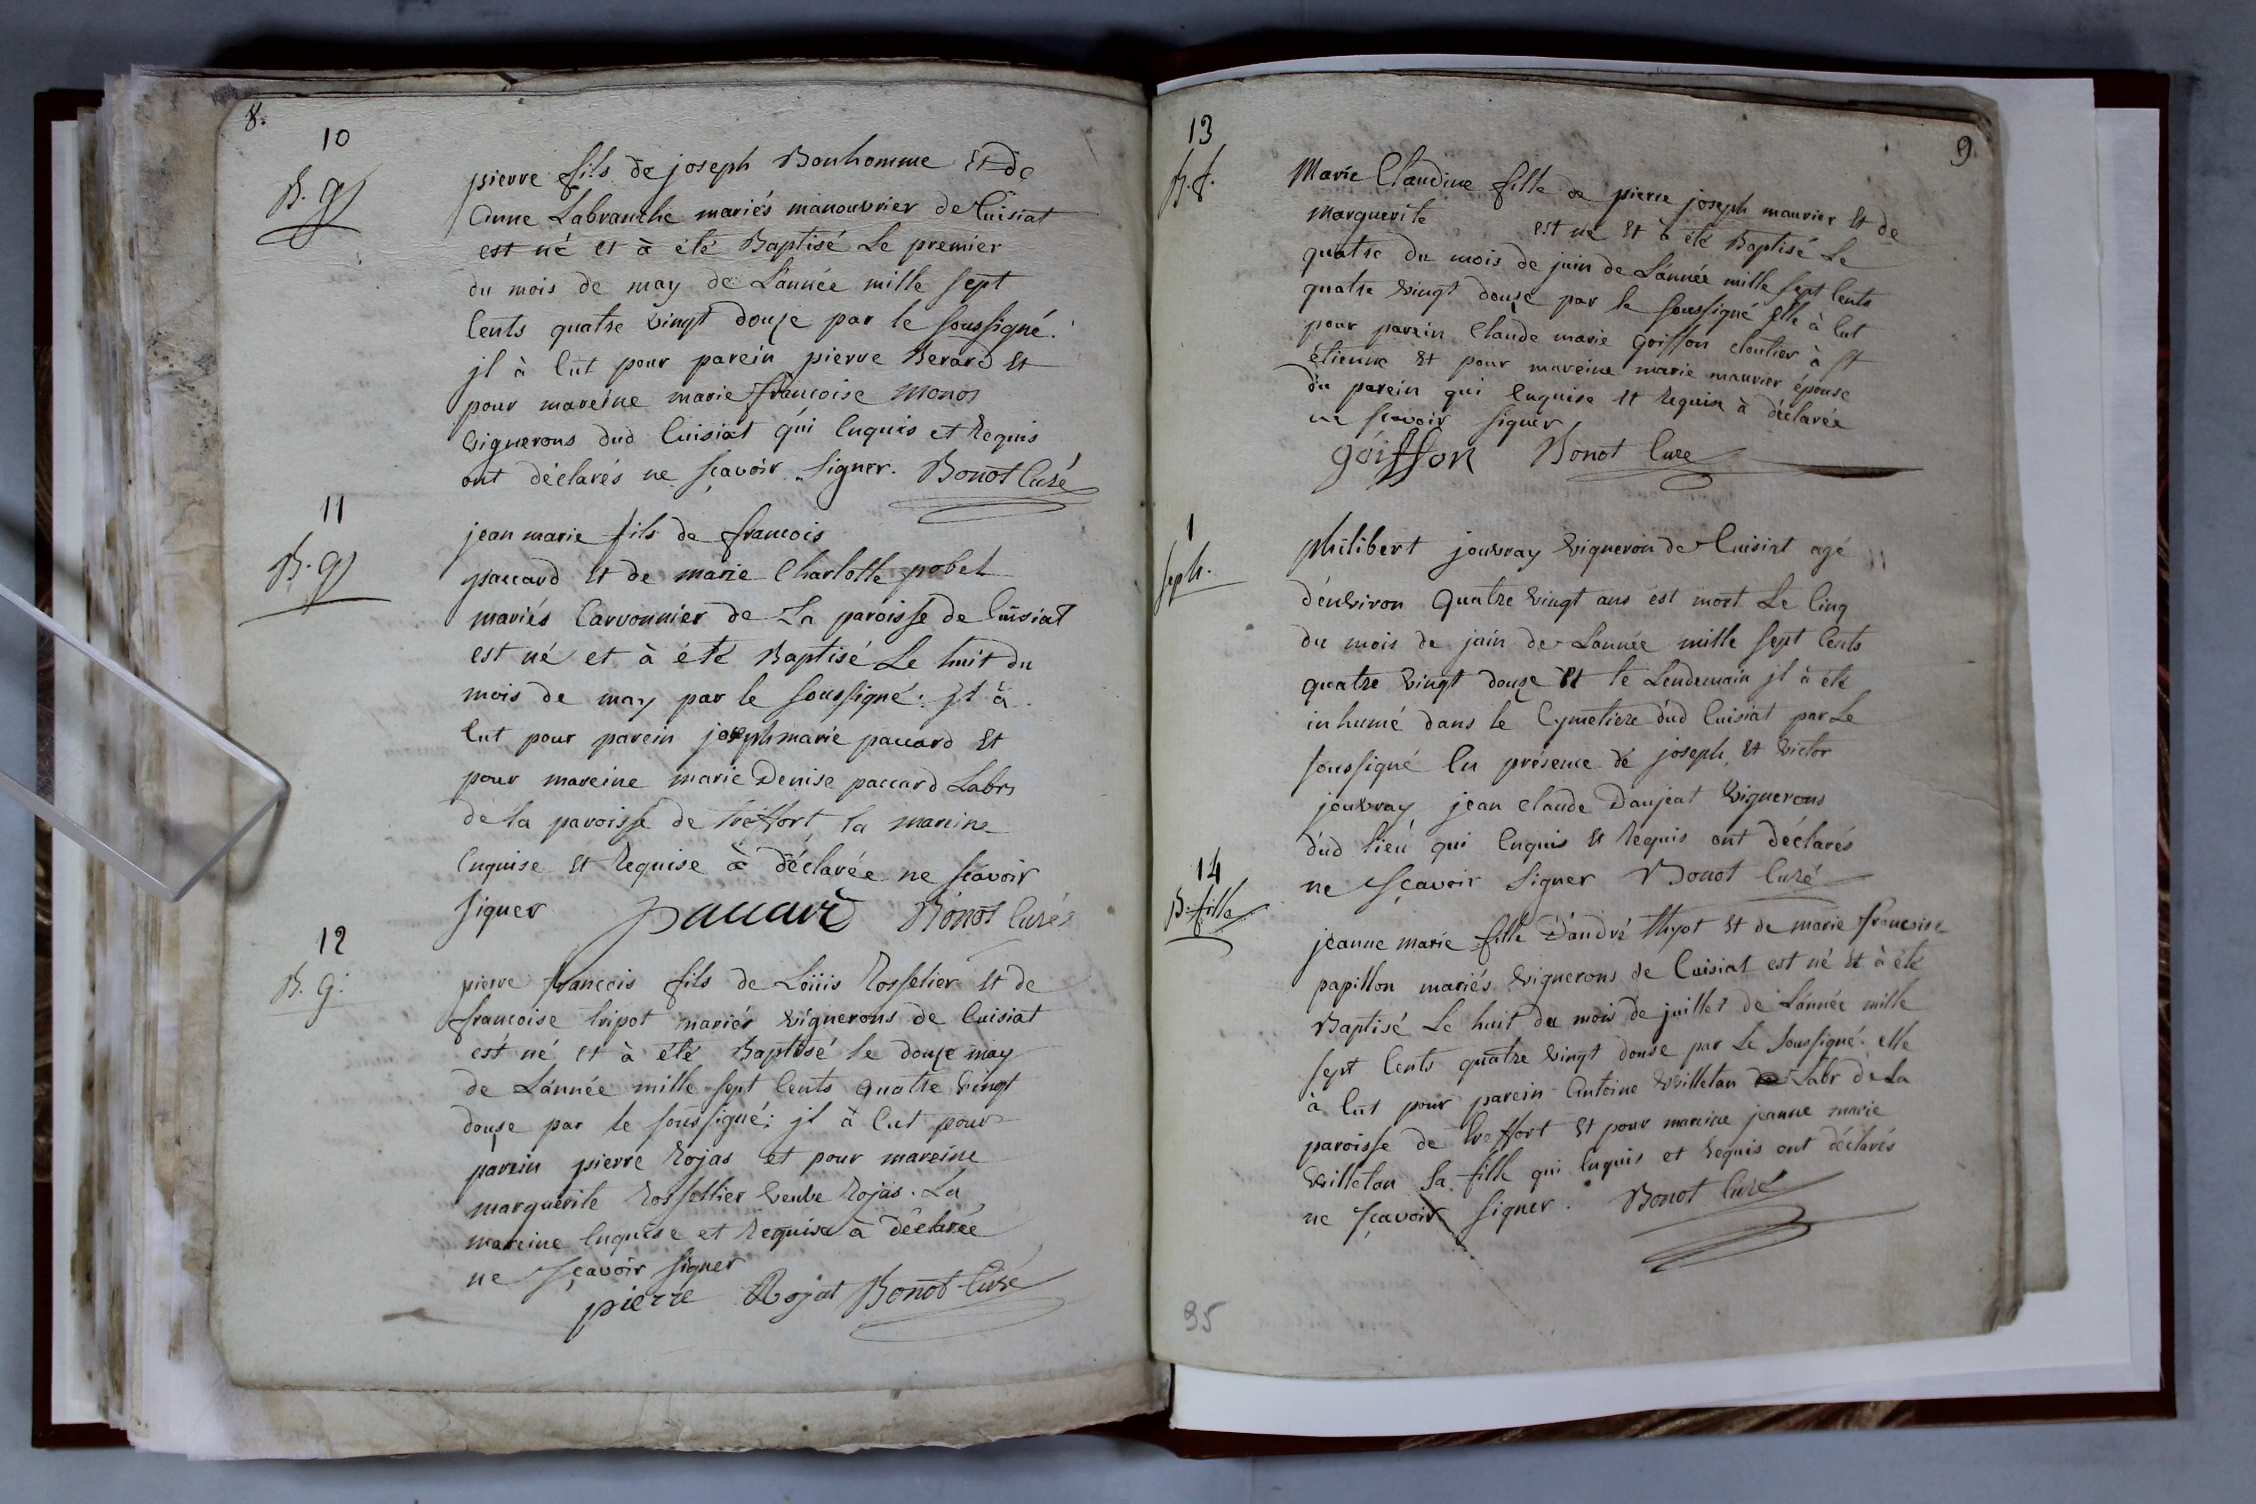 8.
10
B. g
pierre fils de joseph Bonhomme Et de
Anne Labranche mariés manouvrier de Cuisiat
est né et à été Baptisé Le premier
du mois de may de L'année mille sept
Cents quatre vingt douze par le soussigné.
jl à Eut pour parein pierre Berard Et
pour mareine marie francoise monos
vignerons dud Cuisiat qui Enquis et Requis
ont déclarés ne sçavoir signer. Bonot Curé
11
B. g
jean marie fils de francois
paccard Et de marie Charlotte pobel
mariés Carvonnier de La paroisse de Cuisiat
est né et à été Baptisé Le huit du
mois de may par le soussigné. jl à
Eut pour parein joseph marie paccard Et
pour mareine marie Denise paccard Labrs
de la paroisse de treffort, la mareine
Enquise Et Requise à déclarée ne sçavoir
signer paccard Bonot Curé
12
B. g.
pierre francois fils de Loüis Rosselier Et de
francoise tripot mariés vignerons de Cuisiat
est né et à été Baptisé le douze may
de L'année mille sept Cents quatre vingt
douze par le soussigné; jl à Eut pour
parein pierre Rojas et pour mareine
marguerite Rossellier veuve Rojas. La
mareine Enquise et Requise à déclarée
ne sçavoir signer
pierre Rojat Bonot Curé
9
13
B. f.
Marie Claudine fille de pierre joseph maurier Et de
marguerite est né Et à été Baptisé Le
quatre du mois de juin de L'année mille sept Cents
quatre vingt douze par le soussigné Elle à Eut
pour parein Claude marie Goiffon cloutier à st
étienne Et pour mareine marie maurier épouse
du parein qui Enquise Et Requise à déclarée
ne sçavoir signer
goiffon Bonot Curé
1
seph.
philibert jouvray vigneron de Cuisiat agé
d'environ quatre vingt ans est mort Le Cinq
du mois de juin de L'année mille sept Cents
quatre vingt douze Et le Lendemain jl à été
inhumé dans le Cymetiere dud Cuisiat par Le
soussigné En présence de joseph, Et victor
jouvray, jean claude Daujeat vignerons
dud lieu qui Enquis Et Requis ont déclarés
ne sçavoir signer Bonot Curé
14
B. fille
jeanne marie fille D'andré thyot Et de marie francoise
papillon mariés vignerons de Cuisiat est né Et à été
Baptisé Le huit du mois de juillet de L'année mille
sept Cents quatre vingt douze par Le soussigné. elle
à Eut pour parein Antoine villetan Labr de La
paroisse de treffort Et pour mareine jeanne marie
villetan sa fille qui Enquis et Requis ont déclarés
ne sçavoir signer. Bonot Curé
95